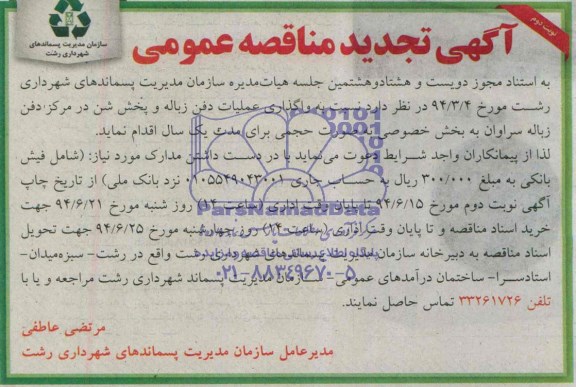 نوبت دوم
سازمان مدیریت پسماندهای
شهرداری رشت
آگهی تجدید مناقصه عمومی
به استناد مجوز دویست و هشتادوهشتمین جلسه هیات‌مدیره سازمان مدیریت پسماندهای شهرداری
رشت مورخ ۹۴/۳/۴ در نظر دارد نسبت به واگذاری عملیات دفن زباله و پخش شن در مرکز دفن
زباله سراوان به بخش خصوصی به صورت حجمی برای مدت یک سال اقدام نماید.
لذا از پیمانکاران واجد شرایط دعوت می‌نماید با در دست داشتن مدارک مورد نیاز: (شامل فیش
بانکی به مبلغ ۳۰۰/۰۰۰ ریال به حساب جاری ۰۱۰۵۵۴۹۰۴۳۰۰۱ نزد بانک ملی) از تاریخ چاپ
آگهی نوبت دوم مورخ ۹۴/۶/۱۵ تا پایان وقت اداری (ساعت ۱۴) روز شنبه مورخ ۹۴/۶/۲۱ جهت
خرید اسناد مناقصه و تا پایان وقت اداری (ساعت ۱۴) روز چهارشنبه مورخ ۹۴/۶/۲۵ جهت تحویل
اسناد مناقصه به دبیرخانه سازمان مدیریت پسماندهای شهرداری رشت واقع در رشت- سبزه‌میدان-
استادسرا- ساختمان درآمدهای عمومی- سازمان مدیریت پسماند شهرداری رشت مراجعه و یا با
تلفن ۳۳۲۶۱۷۲۶ تماس حاصل نمایند.
مرتضی عاطفی
مدیرعامل سازمان مدیریت پسماندهای شهرداری رشت
ParsNamadData
۰۲۱-۸۸۳۴۹۶۷۰-۵